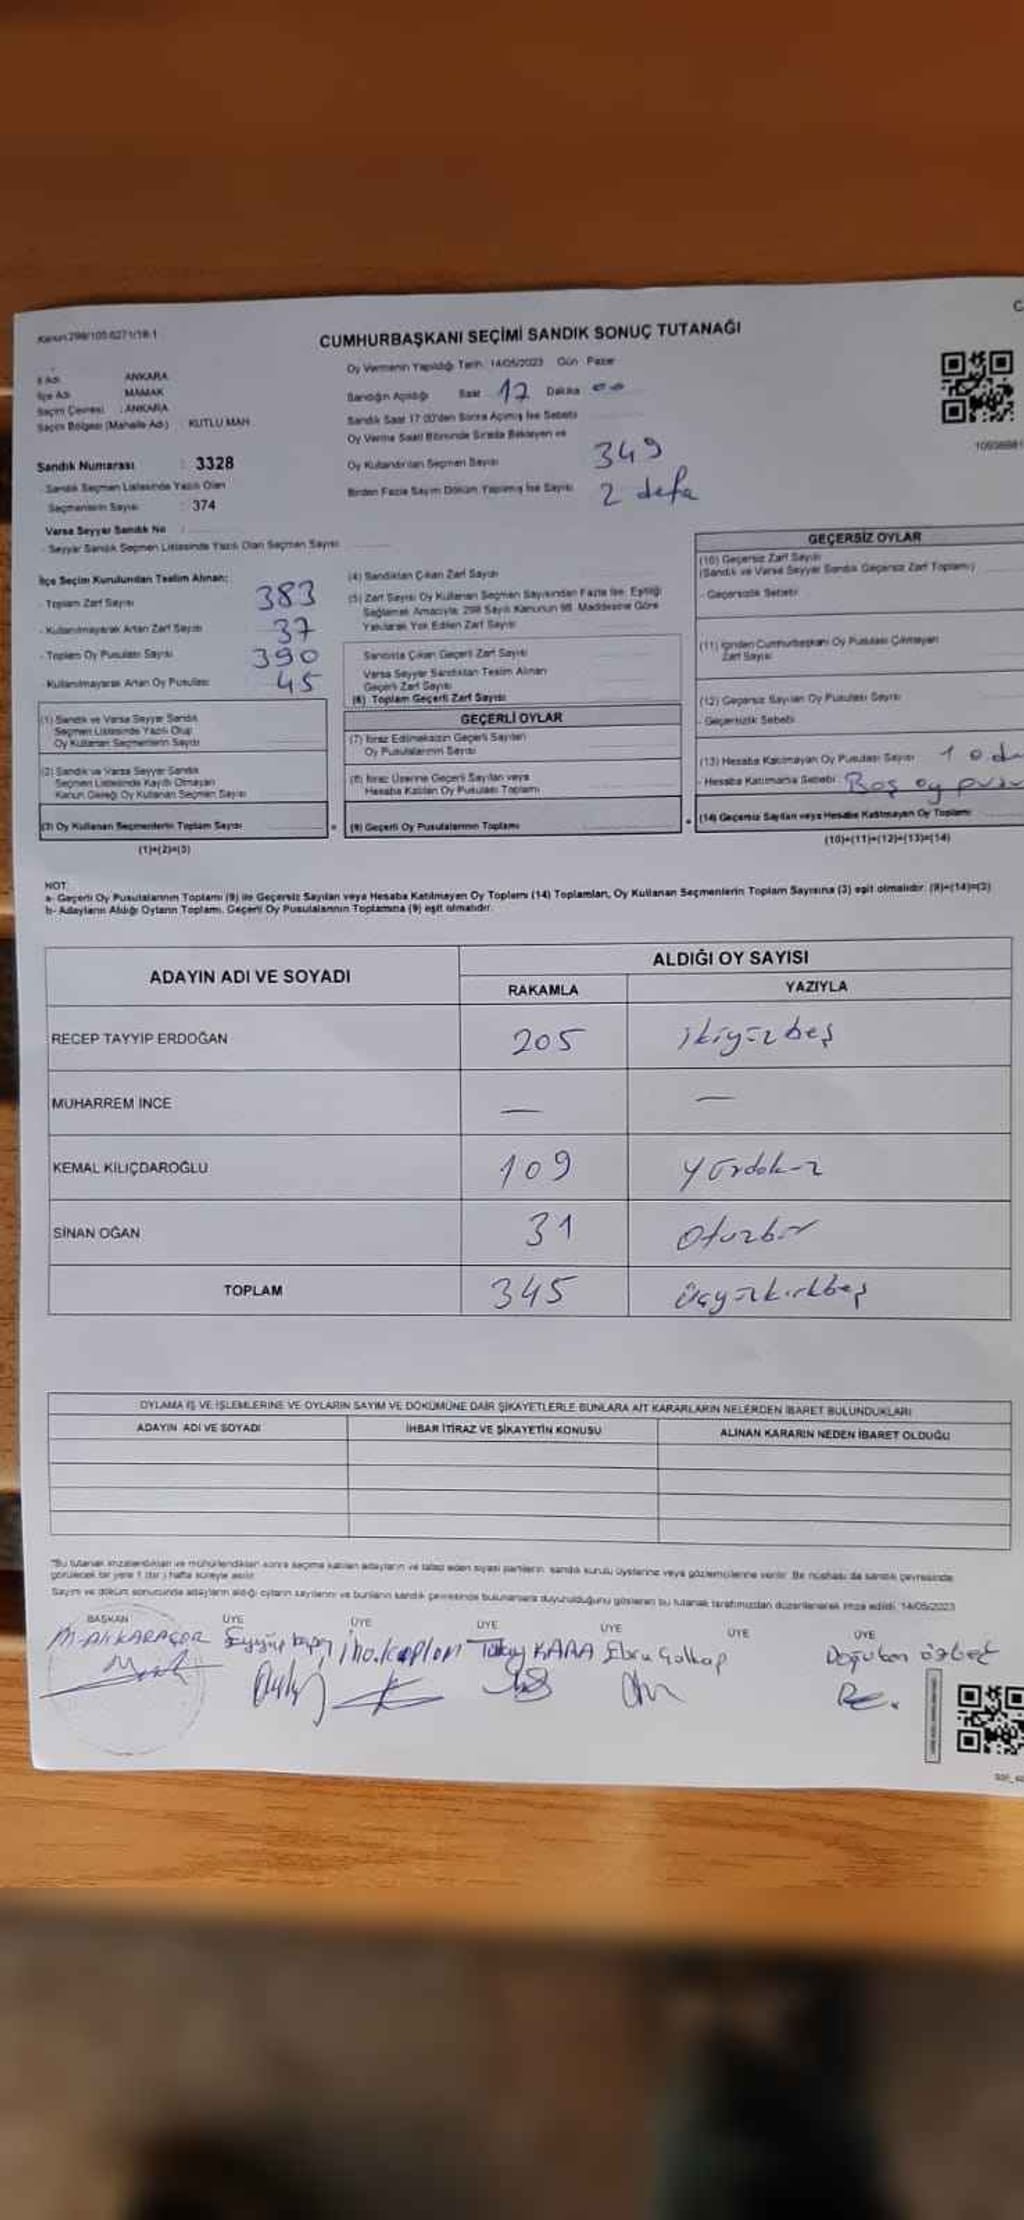 Kanun 298/105 6271/18-1
CUMHURBAŞKANI SEÇİMİ SANDIK SONUÇ TUTANAĞI
İl Adı ANKARA
İlçe Adı MAMAK
Seçim Çevresi : ANKARA
Seçim Bölgesi (Mahalle Adı) KUTLU MAH.
Sandık Numarası : 3328
Sandık Seçmen Listesinde Yazılı Olan
Seçmenlerin Sayısı : 374
Varsa Seyyar Sandık No :
- Seyyar Sandık Seçmen Listesinde Yazılı Olan Seçmen Sayısı
Oy Vermenin Yapıldığı Tarih: 14/05/2023 Gün Pazar
Sandığın Açıldığı Saat 17 Dakika 00
Sandık Saat 17.00'den Sonra Açılmış İse Sebebi
Oy Verme Saati Bitiminde Sırada Bekleyen ve
Oy Kullandırılan Seçmen Sayısı 349
Birden Fazla Sayım Döküm Yapılmış İse Sayısı 2 defa
İlçe Seçim Kurulundan Teslim Alınan;
- Toplam Zarf Sayısı 383
- Kullanılmayarak Artan Zarf Sayısı 37
- Toplam Oy Pusulası Sayısı 390
- Kullanılmayarak Artan Oy Pusulası 45
(1) Sandık ve Varsa Seyyar Sandık
Seçmen Listesinde Yazılı Olup
Oy Kullanan Seçmenlerin Sayısı
(2) Sandık ve Varsa Seyyar Sandık
Seçmen Listesinde Kayıtlı Olmayan
Kanun Gereği Oy Kullanan Seçmen Sayısı
(3) Oy Kullanan Seçmenlerin Toplam Sayısı
(1)+(2)=(3)
(4) Sandıktan Çıkan Zarf Sayısı
(5) Zarf Sayısı Oy Kullanan Seçmen Sayısından Fazla İse, Eşitliği
Sağlamak Amacıyla, 298 Sayılı Kanunun 98. Maddesine Göre
Yakılarak Yok Edilen Zarf Sayısı
Sandıkta Çıkan Geçerli Zarf Sayısı
Varsa Seyyar Sandıktan Teslim Alınan
Geçerli Zarf Sayısı
(6) Toplam Geçerli Zarf Sayısı
GEÇERLİ OYLAR
(7) İtiraz Edilmeksizin Geçerli Sayılan
Oy Pusulalarının Sayısı
(8) İtiraz Üzerine Geçerli Sayılan veya
Hesaba Katılan Oy Pusulası Toplamı
(9) Geçerli Oy Pusulalarının Toplamı
GEÇERSİZ OYLAR
(10) Geçersiz Zarf Sayısı
(Sandık ve Varsa Seyyar Sandık Geçersiz Zarf Toplamı)
- Geçersizlik Sebebi
(11) İçinden Cumhurbaşkanı Oy Pusulası Çıkmayan
Zarf Sayısı
(12) Geçersiz Sayılan Oy Pusulası Sayısı
- Geçersizlik Sebebi
(13) Hesaba Katılmayan Oy Pusulası Sayısı 1
- Hesaba Katılmama Sebebi Boş oy
(14) Geçersiz Sayılan veya Hesaba Katılmayan Oy Toplamı
(10)+(11)+(12)+(13)=(14)
NOT:
a- Geçerli Oy Pusulalarının Toplamı (9) ile Geçersiz Sayılan veya Hesaba Katılmayan Oy Toplamı (14) Toplamları, Oy Kullanan Seçmenlerin Toplam Sayısına (3) eşit olmalıdır. (9)+(14)=(3)
b- Adayların Aldığı Oyların Toplamı, Geçerli Oy Pusulalarının Toplamına (9) eşit olmalıdır.
ADAYIN ADI VE SOYADI
ALDIĞI OY SAYISI
RAKAMLA YAZIYLA
RECEP TAYYİP ERDOĞAN 205 ikiyüzbeş
MUHARREM İNCE — —
KEMAL KILIÇDAROĞLU 109 yüzdokuz
SİNAN OĞAN 31 otuzbir
TOPLAM 345 üçyüzkırkbeş
OYLAMA İŞ VE İŞLEMLERİNE VE OYLARIN SAYIM VE DÖKÜMÜNE DAİR ŞİKAYETLERLE BUNLARA AİT KARARLARIN NELERDEN İBARET BULUNDUKLARI
ADAYIN ADI VE SOYADI İHBAR İTİRAZ VE ŞİKAYETİN KONUSU ALINAN KARARIN NEDEN İBARET OLDUĞU
"Bu tutanak imzalandıktan ve mühürlendikten sonra seçime katılan adayların ve talep eden siyasi partilerin sandık kurulu üyelerine veya gözlemcilerine verilir. Bir nüshası da sandık çevresinde
görülecek bir yere 1 (bir) hafta süreyle asılır.
Sayım ve döküm sonucunda adayların aldığı oyların sayılarını ve bunların sandık çevresinde bulunanlara duyurulduğunu gösteren bu tutanak tarafımızdan düzenlenerek imza edildi. 14/05/2023
BAŞKAN ÜYE ÜYE ÜYE ÜYE ÜYE ÜYE
KARA Ebru